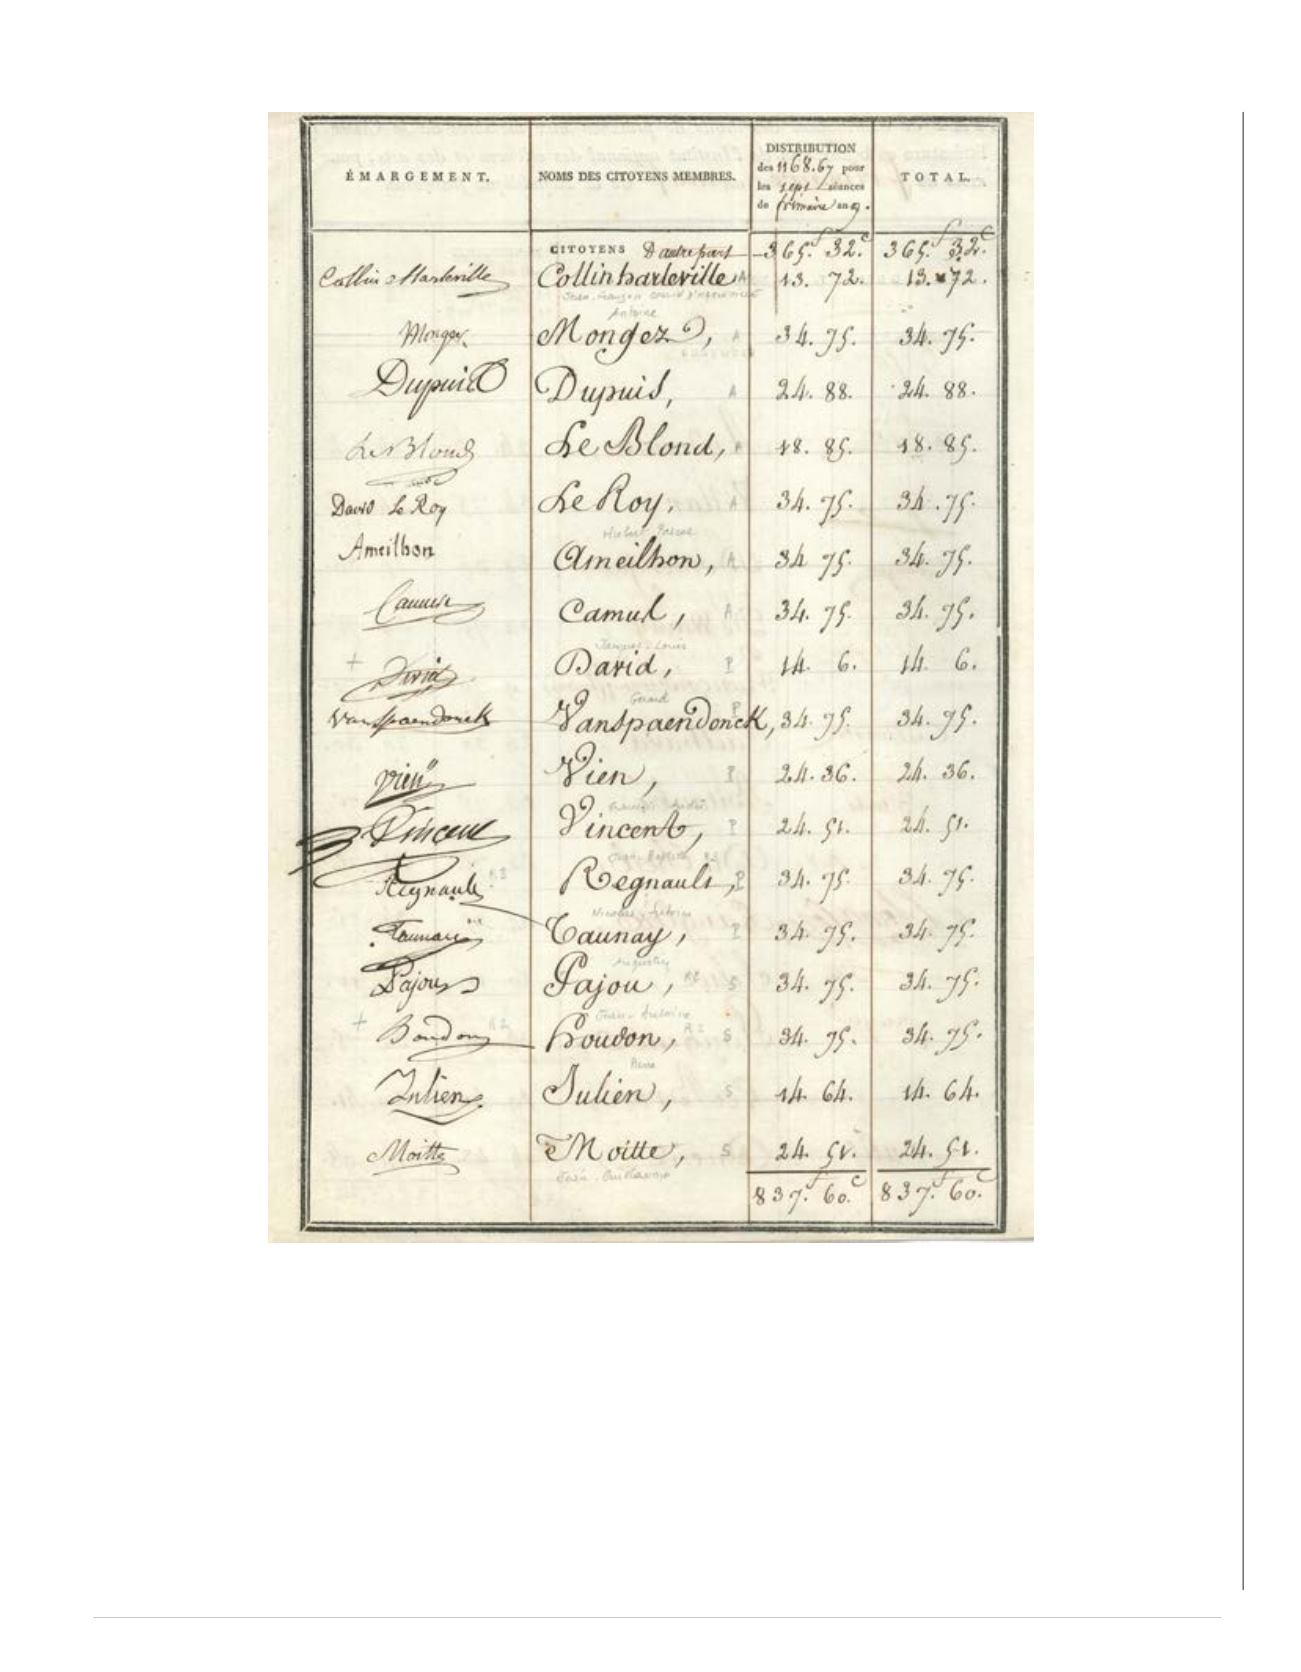 ÉMARGEMENT. NOMS DES CITOYENS MEMBRES. DISTRIBUTION des 1168.67 pour les sept séances de frimaire an 9. TOTAL.
CITOYENS D'autre part 365.f 32.c 365.f 32.c
Collin Harleville Collin harleville A 13. 72. 13. 72.
Antoine
Mongez Mongez, A 34. 75. 34. 75.
Dupuis Dupuis, A 24. 88. 24. 88.
Le Blond Le Blond, 18. 85. 18. 85.
David Le Roy Le Roy, A 34. 75. 34. 75.
Ameilhon Ameilhon, A 34 75. 34. 75.
Camus Camus, A 34. 75. 34. 75.
Jacques-Louis
+ David David, P 14. 6. 14. 6.
Gerard
Vanspaendonck Vanspaendonck, P 34. 75. 34. 75.
Vien Vien, P 24. 36. 24. 36.
François André
Vincent Vincent, P 24. 51. 24. 51.
Jean-Baptiste
Regnault Regnault, P 34. 75. 34. 75.
Nicolas-Antoine
Taunay Taunay, P 34. 75. 34. 75.
Augustin
Pajou Pajou, S 34. 75. 34. 75.
Jean-Antoine
+ Houdon R2 Houdon, R2 S 34. 75. 34. 75.
Pierre
Julien Julien, S 14. 64. 14. 64.
Moitte Moitte, S 24. 51. 24. 51.
Jean-Guillaume
837.f 60.c 837.f 60.c